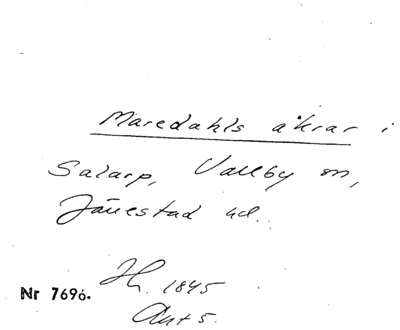 Maredahls åkrar i
Salarp, Vallby sn,
Järrestad hd.
Nr 7696. H. 1845
Akt 5.